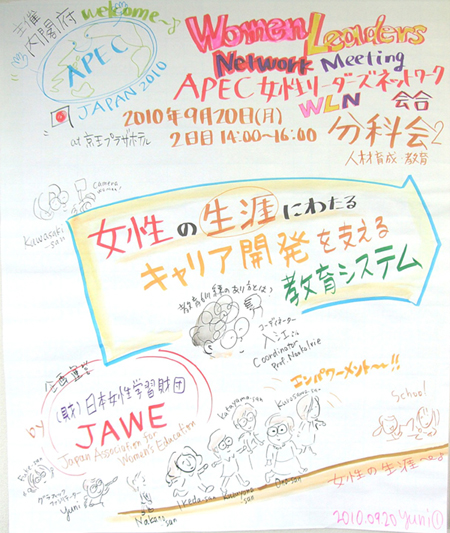 主催
内閣府
welcome~♪
APEC
JAPAN 2010
Women Leaders
Network Meeting
APEC 女性リーダーズネットワーク
WLN 会合
2010年9月20日(月)
at 京王プラザホテル
2日目 14:00~16:00
分科会2
人材育成・教育
Kawasaki
-san
camera
女性の生涯にわたる
キャリア開発を支える
教育システム
教育訓練のあり方とは?
コーディネーター
入江さん
Coordinator
Prof. Naoko Irie
企画運営
by
(財)日本女性学習財団
JAWE
Japan Association for
Women's Education
エンパワーメント~~!!
School
Katayama-san
Kurose-san
グラフィック
ファシリテーター
Yuni
Nakano
san
Ikeda-san
Ono-san
女性の生涯
2010.0920 yuni①